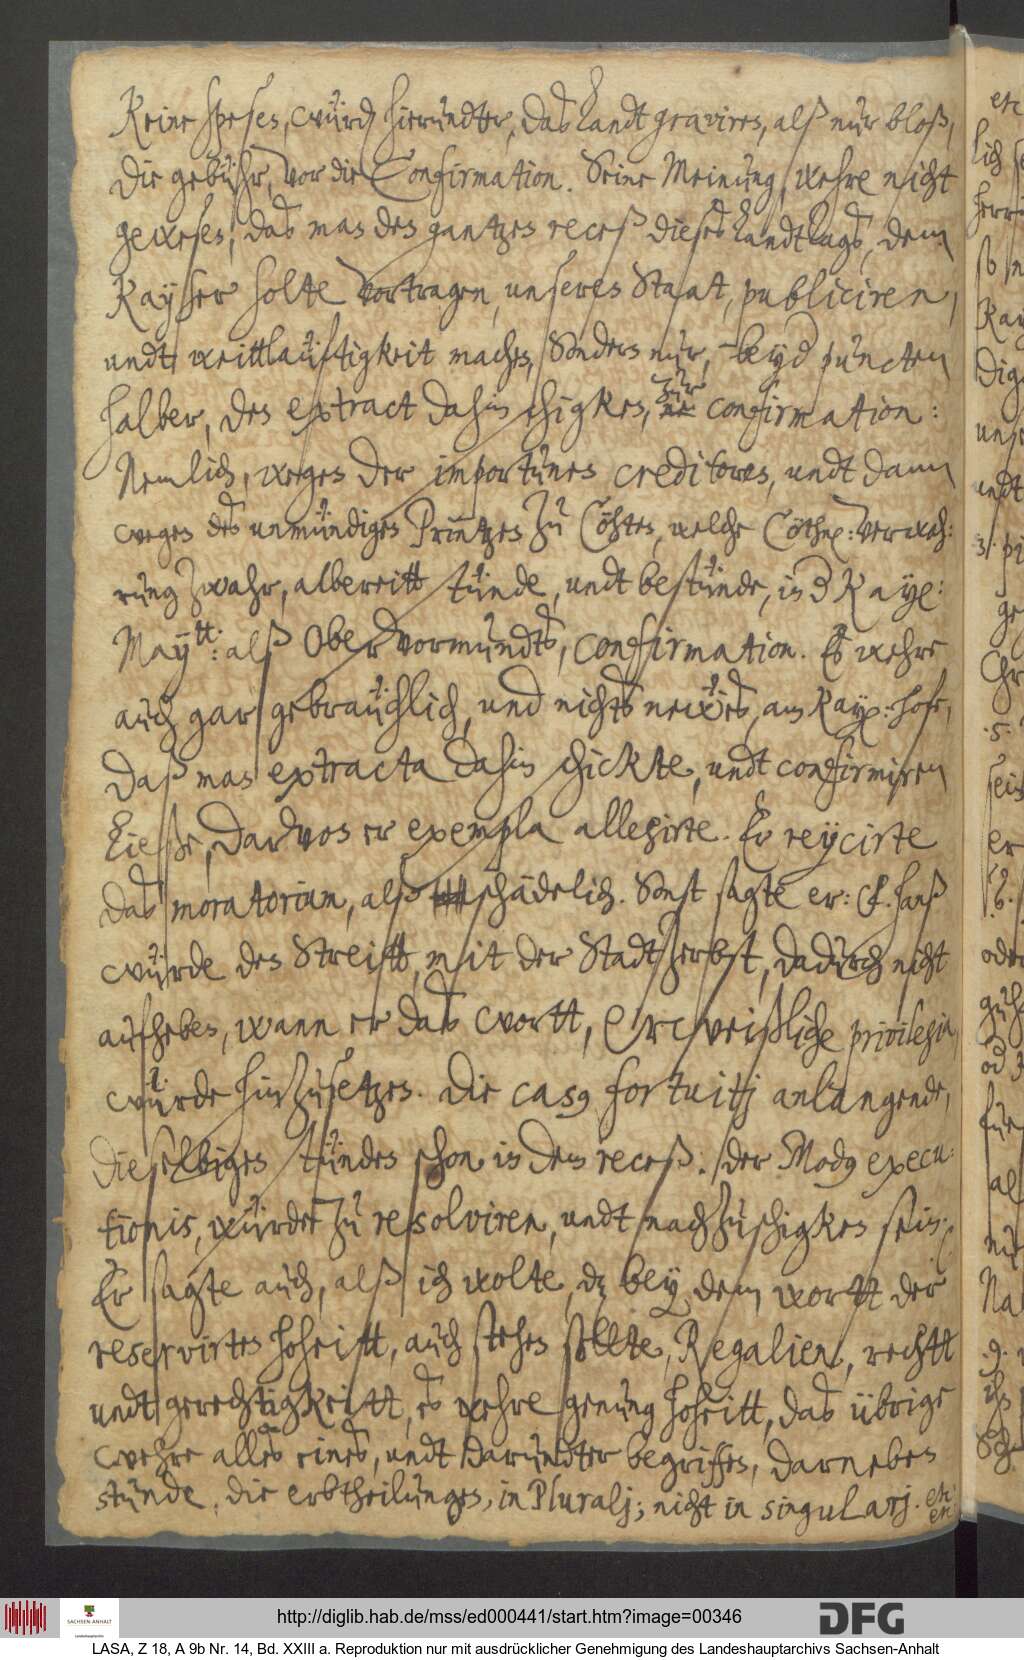 Keine spesen, würd hierundter, das Landt graviren, alß nur bloß,
die gebühr, vor die Confirmation. Seine Meinung, wehre nicht
gewesen, das man den gantzen receß dieses Landtags, dem
Kayser solte vortragen, unseren Staat, publiciren,
undt weittläuftigkeit machen, Sondern nur, beyd puncten
halber, den extract dahin schigken, zur confirmation:
Nemlich, wegen der importunen creditoren, undt dann
wegen des unmündigen Printzen zu Cöhten, welche Cöthn: verwah:
rung zwahr, albereitt stünde, undt bestünde, in d Kays:
Maytt: alß Ober Vormundts, confirmation. Es wehre
auch gar gebräuchlich, und nichts neües, am Kays: hofe,
daß man extracta dahin schickte, undt confirmiren
Ließe, dardvon er exempla allegirte. Er reijcirte
das moratorium, alß schädelich. Sonst sagte er: C. Hanß
würde den Streitt, mit der Stadt Zerbst, dadurch nicht
aufheben, wann er das wortt, Erweißliche privilegia
würde hinzusetzen. Die casus fortuitj anlangende,
dieselbigen stünden schon in dem receß. der Modus execu:
tionis, würde zu resolviren, undt nachzuschigken sein.
Er sagte auch, alß ich wolte, dz bey dem wortt der
reservirten hoheitt, auch stehen sollte, Regalien, rechtt
undt gerechtigkeitt, es wehre genung hoheitt, das übrige
wehre alles eines, undt darundter begriffen, darneben
stunde, die erbtheilungen, in Pluralj; nicht in singularj. etc.
etc.
http://diglib.hab.de/mss/ed000441/start.htm?image=00346
SACHSEN-ANHALT
Landeshauptarchiv
DFG
LASA, Z 18, A 9b Nr. 14, Bd. XXIII a. Reproduktion nur mit ausdrücklicher Genehmigung des Landeshauptarchivs Sachsen-Anhalt